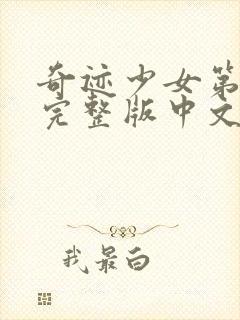 奇迹少女第
完整版中文
我最白